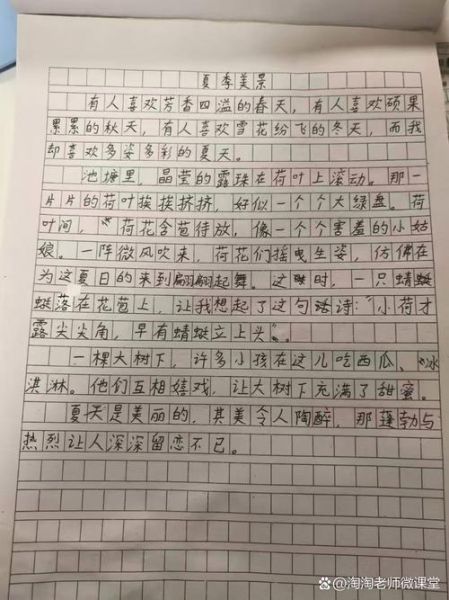 夏季美景
有人喜欢芳香四溢的春天，有人喜欢硕果
累累的秋天，有人喜欢雪花纷飞的冬天，而我
却喜欢多姿多彩的夏天。
池塘里，晶莹的露珠在荷叶上滚动。那一
片片的荷叶挨挨挤挤，好似一个个大绿盘。荷
叶间，荷花含苞待放，像一个个害羞的小姑
娘。一阵微风吹来，荷花们摇曳生姿，仿佛在
为这夏日的来到翩翩起舞。这时，一只蜻
蜓落在花苞上，让我想起了这句诗：“小荷才
露尖尖角，早有蜻蜓立上头”。
一棵大树下，许多小孩在这儿吃西瓜、冰
淇淋。他们互相嬉戏，让大树下充满了甜蜜。
夏天是美丽的，其美令人陶醉，那蓬勃与
热烈让人深深留恋不已。
淘淘老师微课堂